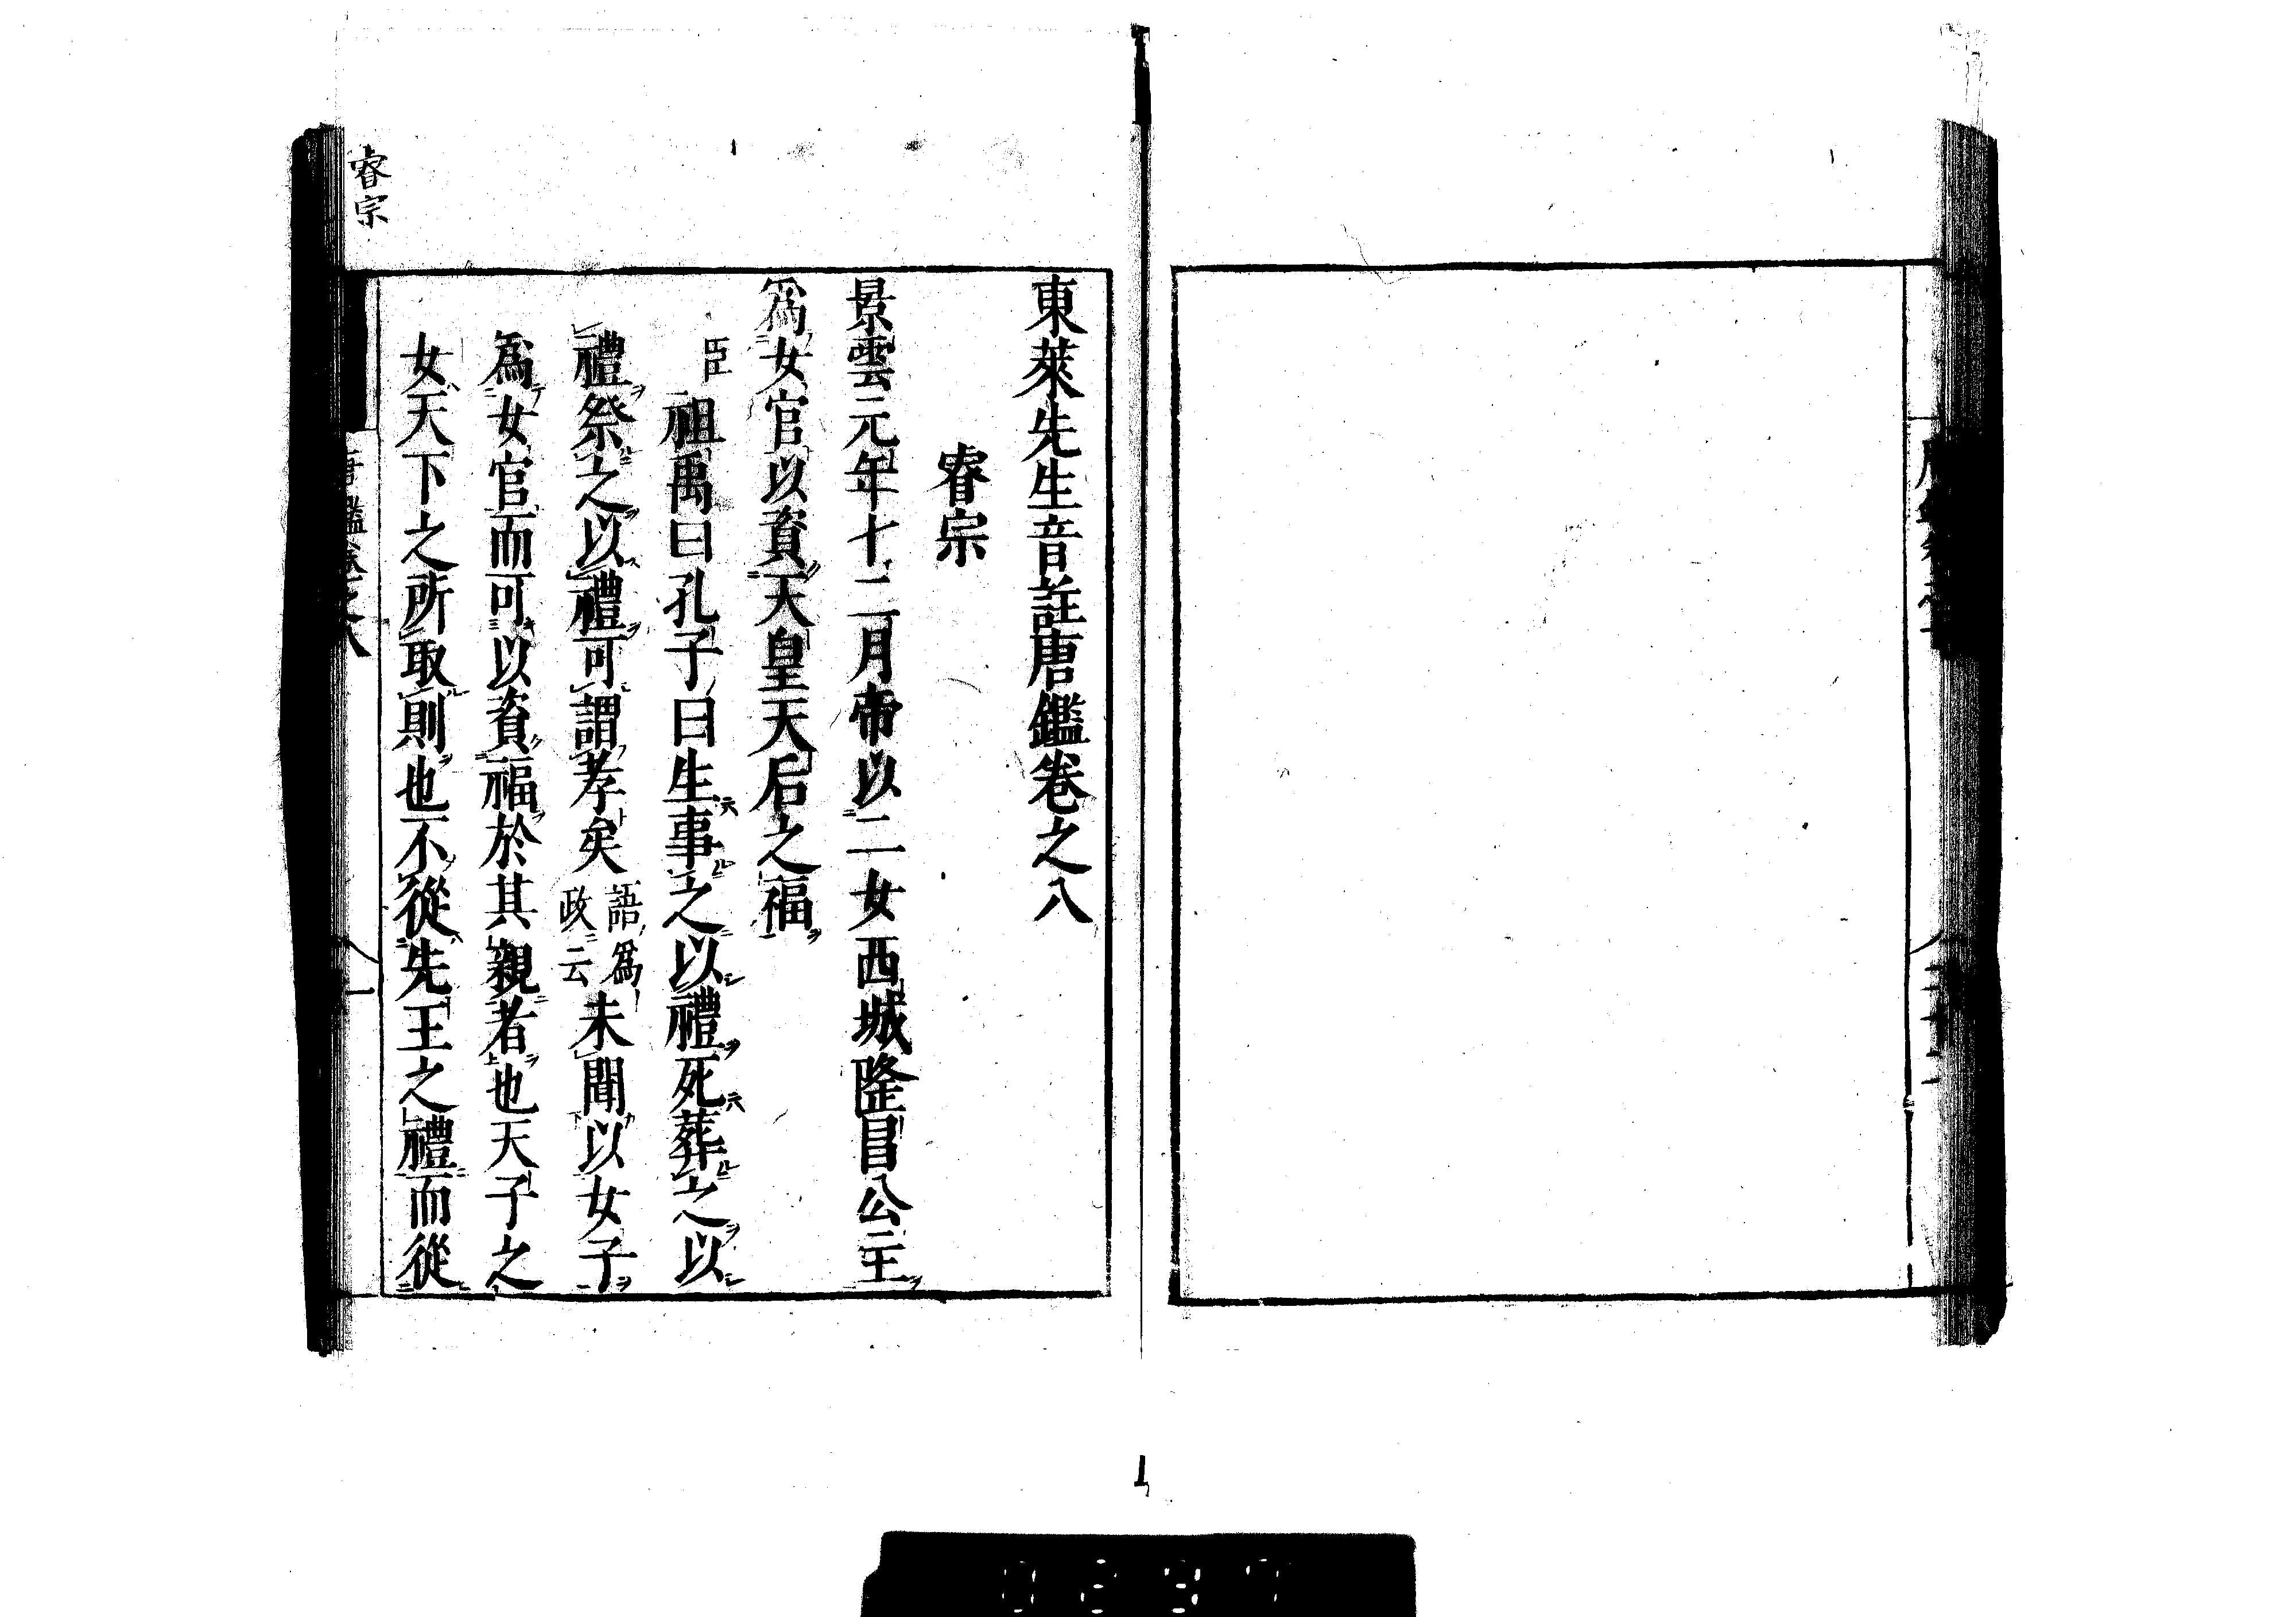 東萊先生音註唐鑑卷之八
睿宗
景雲元年十二月帝以二女西城隆昌公主
爲女官以資天皇天后之福
臣祖禹曰孔子曰生事之以禮死葬之以
禮祭之以禮可謂孝矣語爲政云未聞以女子
爲女官而可以資福於其親者也天子之
女天下之所取則也不從先王之禮而從
睿宗
唐鑑卷之八
一
1